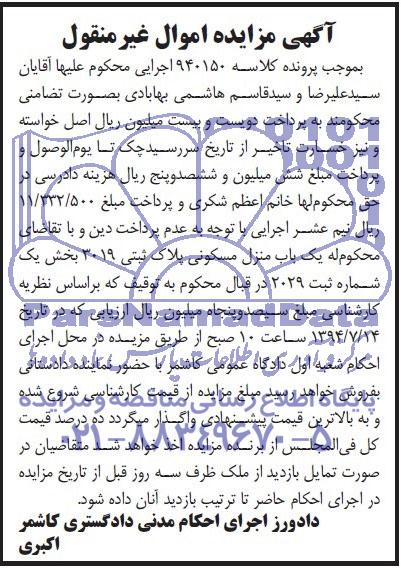 آگهی مزایده اموال غیرمنقول
بموجب پرونده کلاسه ۹۴۰۱۵۰ اجرایی محکوم علیها آقایان
سیدعلیرضا و سیدقاسم هاشمی بهابادی بصورت تضامنی
محکومند به پرداخت دویست و بیست میلیون ریال اصل خواسته
و نیز خسارت تاخیر از تاریخ سررسیدچک تا یوم‌الوصول و
پرداخت مبلغ شش میلیون و ششصدوپنج ریال هزینه دادرسی در
حق محکوم‌لها خانم اعظم شکری و پرداخت مبلغ ۱۱/۳۳۲/۵۰۰
ریال نیم عشر اجرایی با توجه به عدم پرداخت دین و با تقاضای
محکوم‌له یک باب منزل مسکونی پلاک ثبتی ۳۰۱۹ بخش یک
شماره ثبت ۲۰۲۹ در قبال محکوم به توقیف که براساس نظریه
کارشناسی مبلغ سیصدوپنجاه میلیون ریال ارزیابی که در تاریخ
۱۳۹۴/۷/۲۴ ساعت ۱۰ صبح از طریق مزیده در محل اجرای
احکام شعبه اول دادگاه عمومی کاشمر با حضور نماینده دادستانی
بفروش خواهد رسید مبلغ مزایده از قیمت کارشناسی شروع شده
و به بالاترین قیمت پیشنهادی واگذار میگردد ده درصد قیمت
کل فی‌المجلس از برنده مزایده اخذ خواهد شد متقاضیان در
صورت تمایل بازدید از ملک ظرف سه روز قبل از تاریخ مزایده
در اجرای احکام حاضر تا ترتیب بازدید آنان داده شود.
دادورز اجرای احکام مدنی دادگستری کاشمر
اکبری
ParsNamadData
پایگاه اطلاع رسانی مناقصه و مزایده
۰۲۱-۸۸۳۴۹۶۷۰-۵